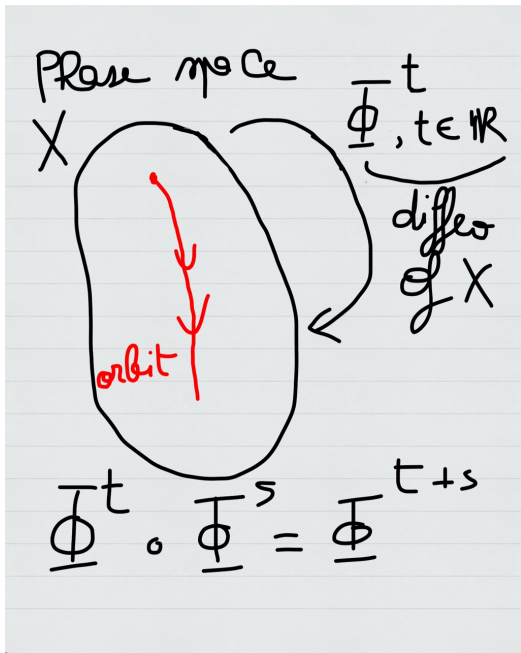 Phase space
X
Φ^t, t ∈ ℝ
diffeo
of X
orbit
Φ^t ∘ Φ^s = Φ^{t+s}